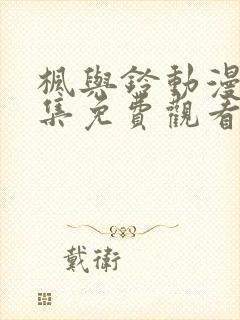 楓與鈴動漫
集免費觀看
戴衛